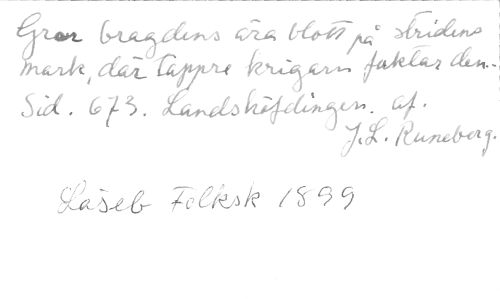 Gror bragdens ära blott på stridens
mark, där tappre krigarn fäktar den..
Sid. 673. Landshöfdingen. af.
J. L. Runeberg.
Läseb Folksk 1899